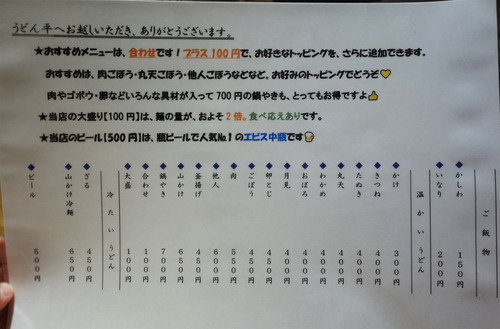 うどん平へお越しいただき、ありがとうございます。
★おすすめメニューは、合わせです！プラス100円で、お好きなトッピングを、さらに追加できます。
おすすめは、肉ごぼう・丸天ごぼう・他人ごぼうなどなど、お好みのトッピングでどうぞ💛
肉やゴボウ・卵などいろんな具材が入って700円の鍋やきも、とってもお得ですよ👍
★当店の大盛り【100円】は、麺の量が、およそ2倍。食べ応えありです。
★当店のビール【500円】は、瓶ビールで人気No.1のエビス中瓶です🍺
ご飯物
◆かしわ 150円
◆いなり 200円
温かいうどん
◆かけ 300円
◆きつね 400円
◆たぬき 400円
◆丸天 400円
◆わかめ 400円
◆おぼろ 400円
◆月見
◆卵とじ 450円
◆ごぼう 450円
◆肉
◆他人
◆釜揚げ 450円
◆山かけ
◆鍋やき 700円
◆合わせ 100円
◆大盛 100円
冷たいうどん
◆ざる 450円
◆山かけ冷麺 650円
◆ビール 500円